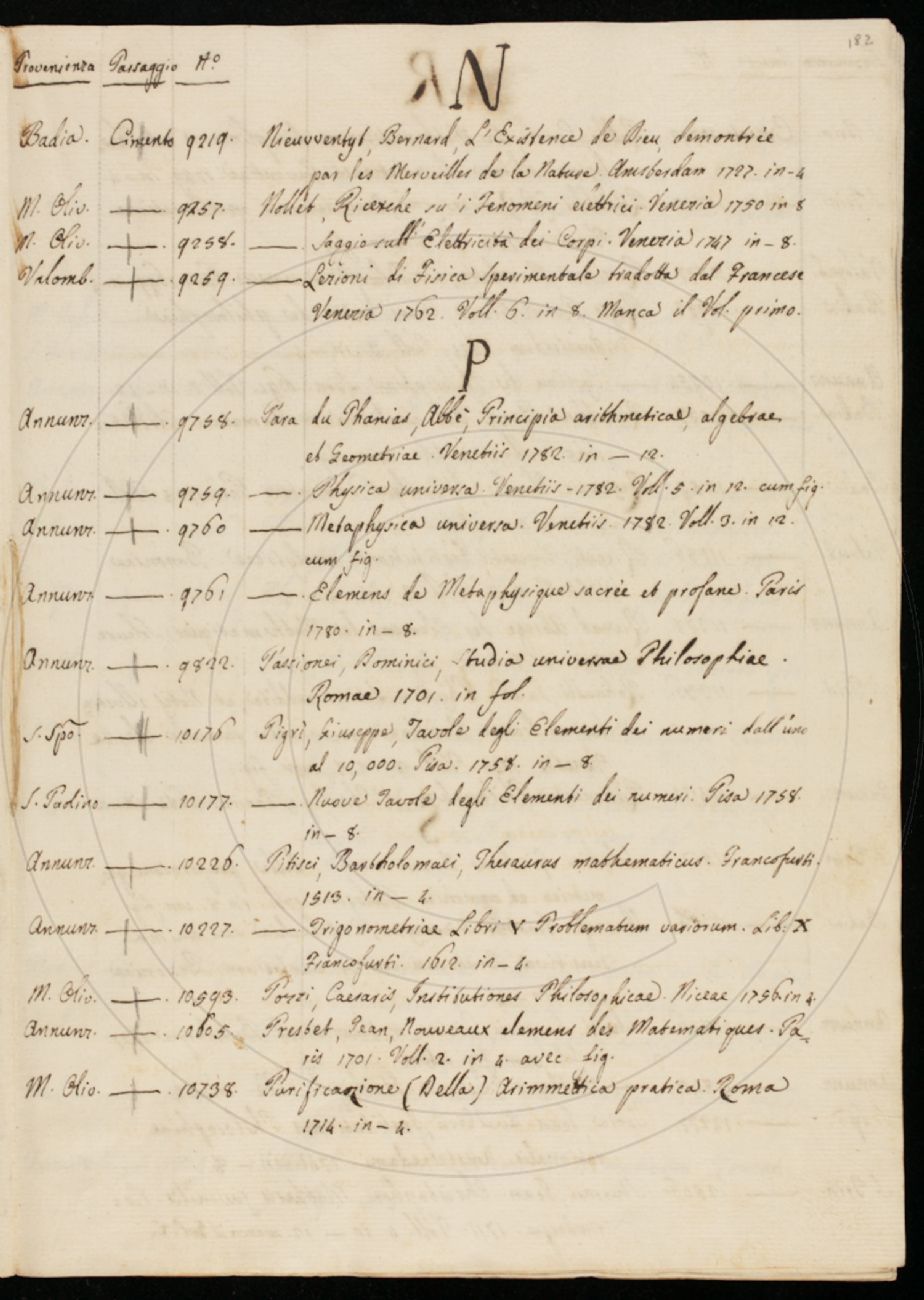 182
Provenienza Passaggio N.º
N
Badia. Cimento 9219. Nieuvventyt, Bernard, L'Existence de Dieu demontrée
par les Merveilles de la Nature. Amsterdam 1727. in-4
M. Oliv. — 9257. Nollet, Ricerche su' i Fenomeni elettrici. Venezia 1750 in 8
M. Oliv. — 9258. — Saggio sull' Elettricità dei Corpi. Venezia 1747 in-8.
Valomb. — 9259. — Lezioni di Fisica sperimentale tradotte dal Francese
Venezia 1762. Voll. 6. in 8. Manca il Vol. primo.
P
Annunz. — 9758. Para du Phanias, Abbè, Principia arithmeticae, algebrae
et Geometriae. Venetiis 1782. in — 12.
Annunz. — 9759. — Physica universa. Venetiis - 1782. Voll. 5. in 12. cum fig.
Annunz. — 9760 — Metaphysica universa. Venetiis. 1782. Voll. 3. in 12.
cum fig.
Annunz. — 9761 — Elemens de Metaphysique sacrèe et profane. Paris
1780. in-8.
Annunz. — 9822. Passionei, Dominici, Studia universae Philosophiae.
Romae 1701. in fol.
S. Spo. — 10176 Pigri, Giuseppe, Tavole degli Elementi dei numeri dall'uno
al 10,000. Pisa. 1758. in — 8.
S. Paolino — 10177. — Nuove Tavole degli Elementi dei numeri. Pisa 1758.
in — 8.
Annunz. — 10226. Pitisci, Bartholomaei, Thesaurus mathematicus. Francofurti.
1513. in — 4.
Annunz. — 10227. — Trigonometriae Libri V Problematum variorum. Lib. X
Francofurti. 1612. in — 4.
M. Oliv. — 10593. Pozzi, Caesaris, Institutiones Philosophicae. Niceae 1756. in 4.
Annunz. — 10605. Prestet, Jean, Nouveaux elemens des Matematiques. Pa-
ris 1701. Voll. 2. in 4. avec fig.
M. Oliv. — 10738. Purificazione (Della) Arimmetica pratica. Roma
1714. in — 4.